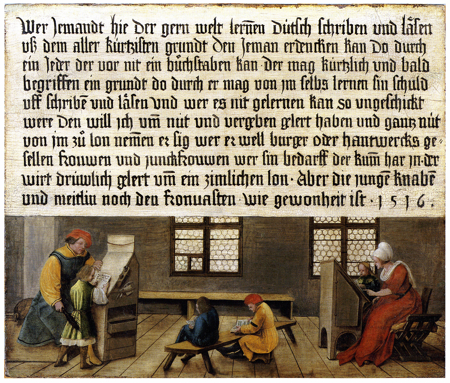 Wer Jemandt hie der gern welt lernen Dütsch schriben und läsen
uß dem aller kürtzisten grundt den Jeman erdencken kan Do durch
ein Jeder der vor nit ein büchstaben kan der mag kürtzlich und bald
begriffen ein grundt do durch er mag von jm selbs lernen sin schuld
uff schribē und läsen Und wer es nit gelernen kan so ungeschickt
were Den will jch um̄ nüt und vergeben gelert haben und gantz nüt
von jm zů lon nem̄en er sig wer er well burger oder hantwercks ge-
sellen frouwen und junckfrouwen wer sin bedarff der kum̄ har jn der
wirt drüwlich gelert um̄ ein zimlichen lon · Aber die jungē knabē
und meitlin noch den fronuasten wie gewonheit ist · 1516 ·